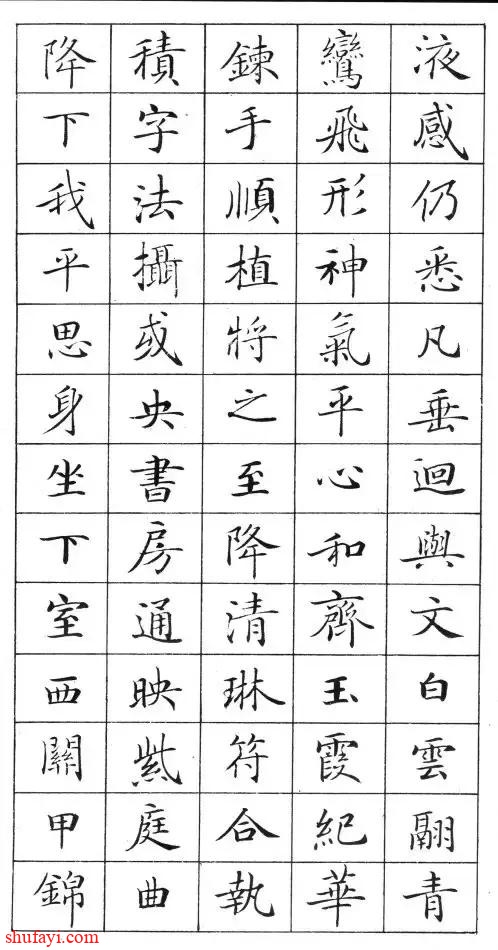 液感仍悉凡垂迴與文白雲翮青
鸞飛形神氣平心和齊玉霞紀華
鍊手順植將之至降清琳符合執
積字法攝或央書房通映紫庭曲
降下我平思身坐下室西關甲錦
shufayi.com